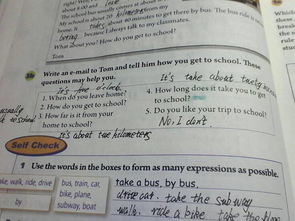 right? Well
about 8:00 and
The school bus usually
My school is about 20 kilometers from my
home. It takes about 40 minutes to get there by bus. The bus ride is
boring because I always talk to my classmates.
What about you? How do you get to school?
Tom
3b Write an e-mail to Tom and tell him how you get to school. These
questions may help you.
It's take about twenty
It's five o'clock.
1. When do you leave home?
4. How long does it take you to get
2. How do you get to school?
to school?
3. How far is it from your
5. Do you like your trip to school?
home to school?
No, I don't
It's about two kilometers
Self Check
1 Use the words in the boxes to form as many expressions as possible.
take, walk, ride, drive
bus, train, car,
bike, plane,
subway, boat
by
take a bus, by bus,
drive car. take the subway
walk. ride a bike take the